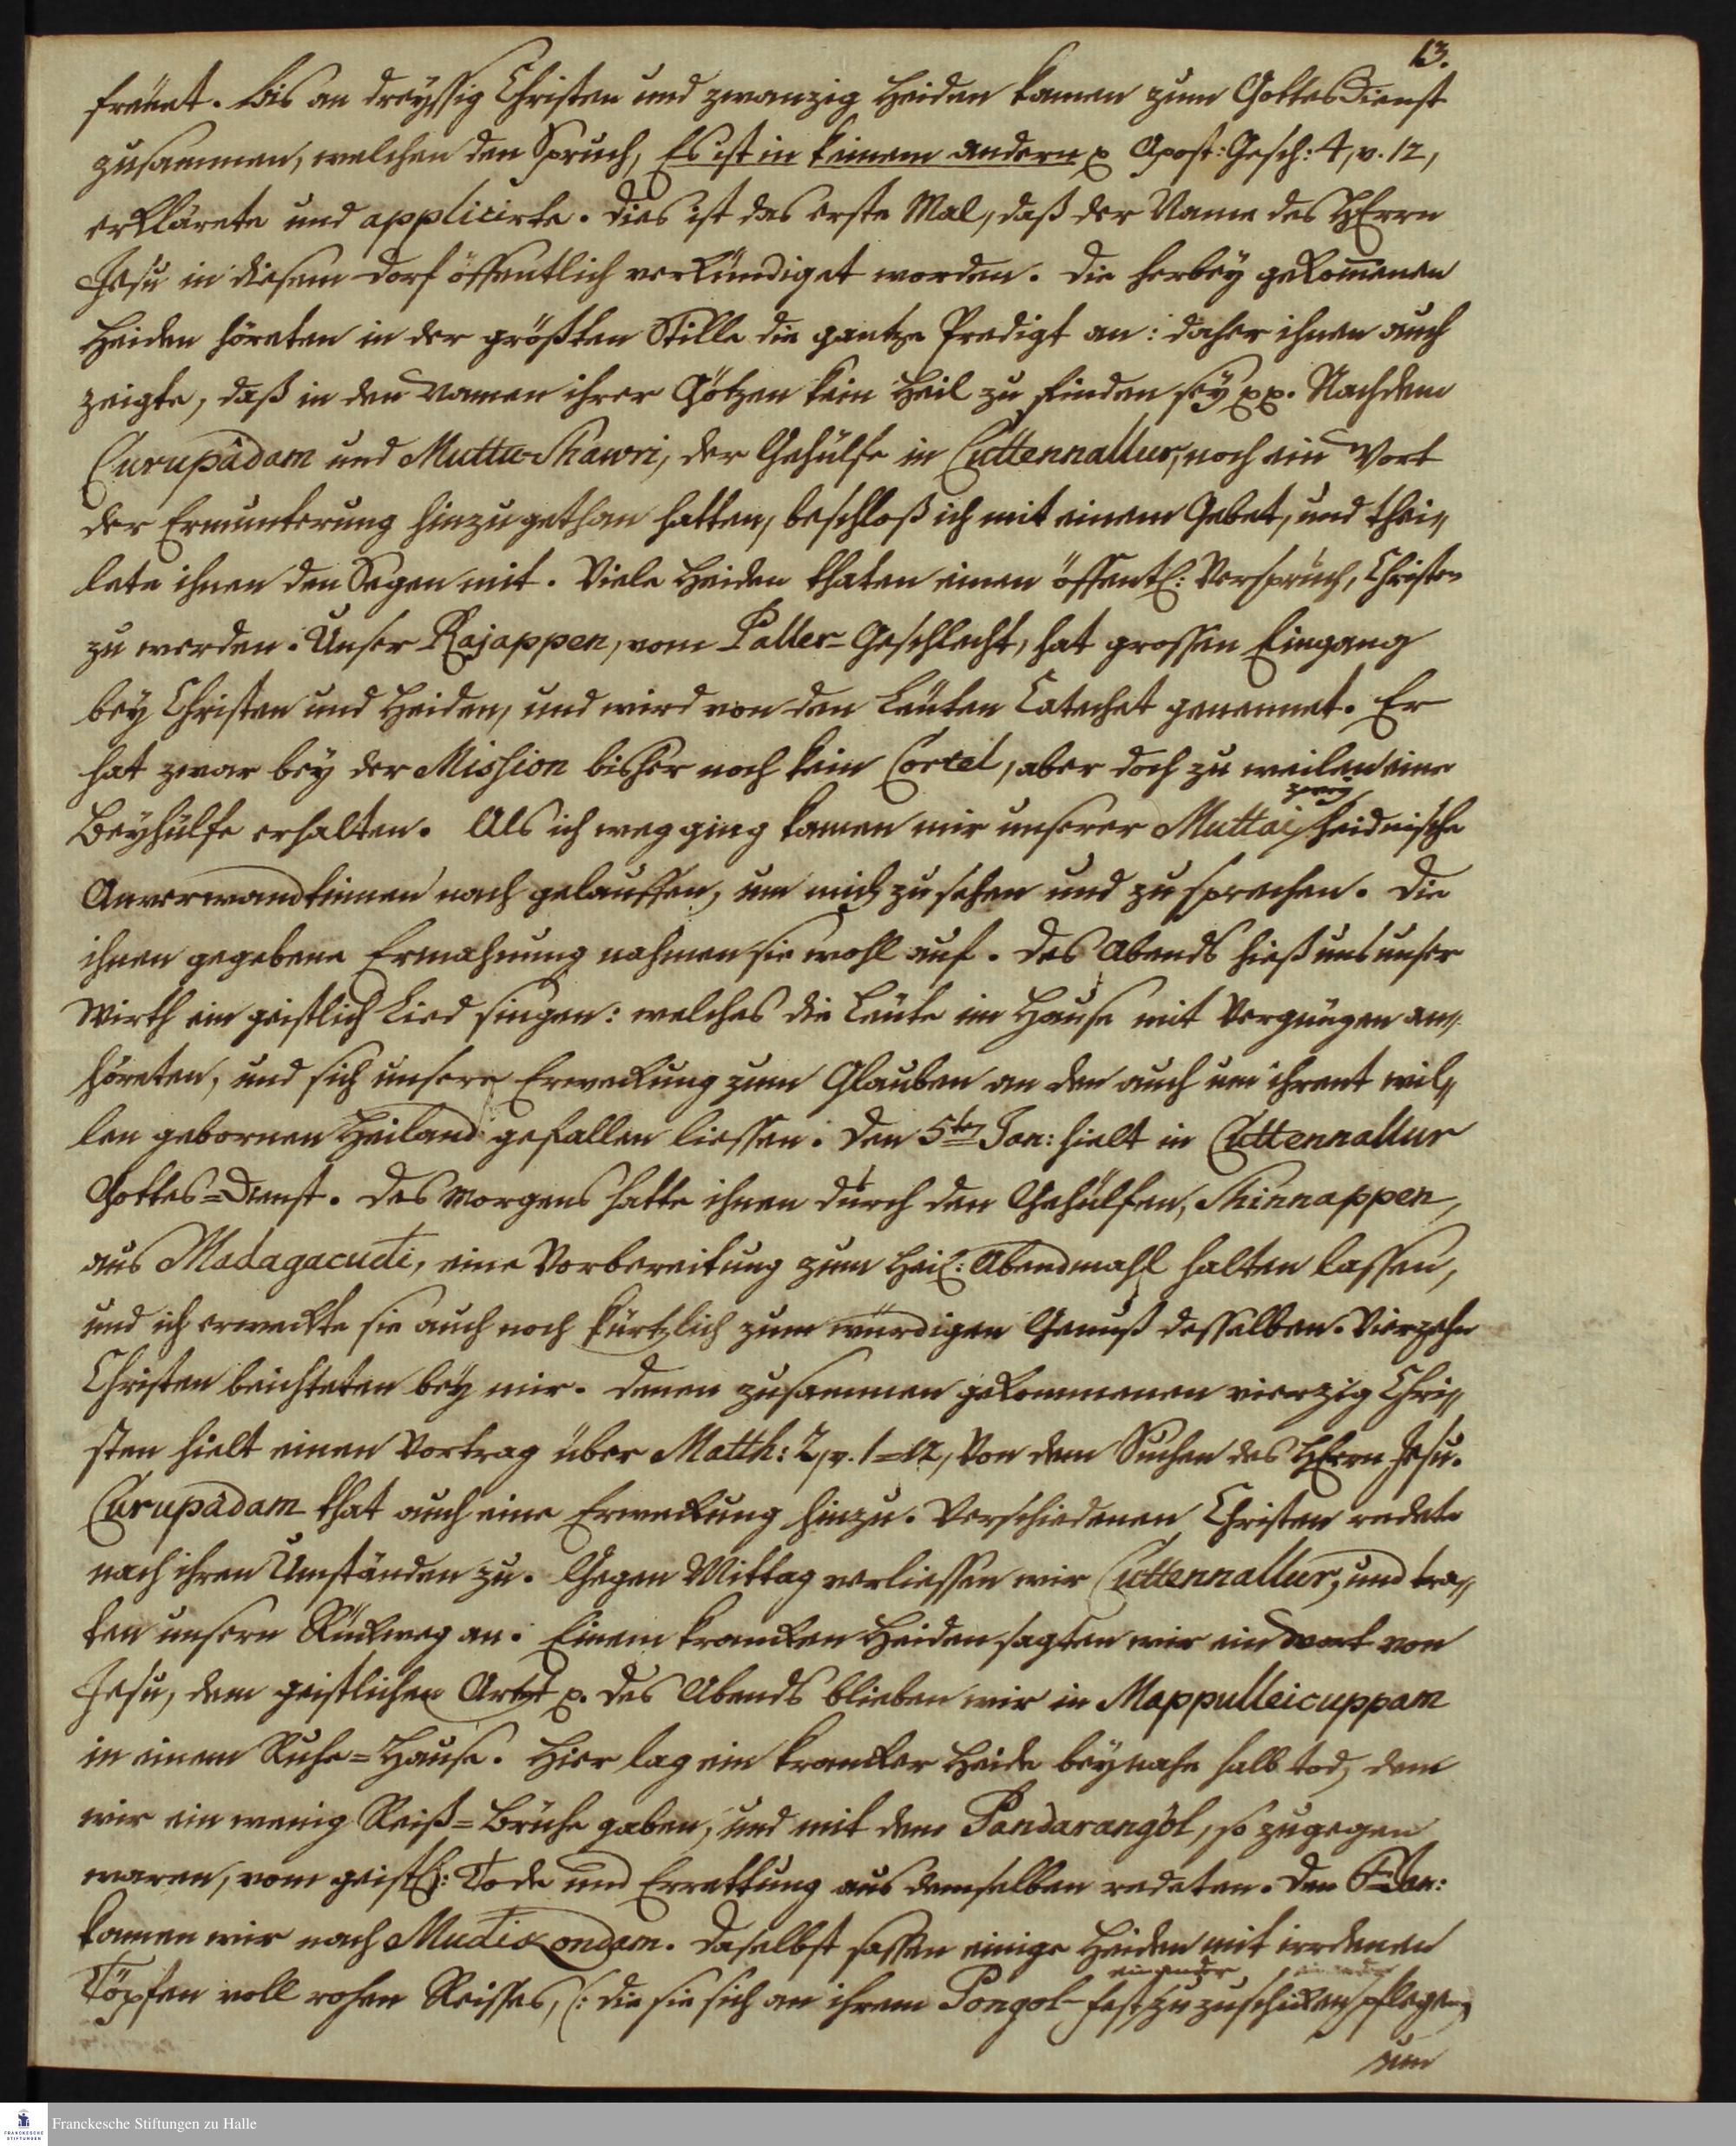 13.
freuet. Bis an dreyssig Christen und zwanzig Heiden kamen zum GottesDienst
zusammen, welchen den Spruch, Es ist in keinem andern p Apost: Gesch: 4, v. 12,
erklärete und applicirte. Dies ist das erste Mal, daß der Name des HErrn
Jesu in diesem Dorf öffentlich verkündiget worden. Die herbey gekom̄enen
Heiden höreten in der größten Stille die gantze Predigt an: daher ihnen auch
zeigte, daß in den Namen ihrer Götzen kein Heil zu finden sey pp. Nachdem
Curupâdam und Muttu-Shawri, der Gehülfe in Cuttennallur, noch ein Wort
der Ermunterung hinzugethan hatten, beschloß ich mit einem Gebet, und thei„
lete ihnen den Segen mit. Viele Heiden thaten einen öffentl: Verspruch, Christen
zu werden. Unser Rajappen, vom Paller-Geschlecht, hat grossen Eingang
bey Christen und Heiden, und wird von den Leuten Catechet genennet. Er
hat zwar bey der Mission bisher noch kein Cortel, aber doch zu weilen eine
Beyhülfe erhalten. Als ich wegging kamen mir unserer Muttai zwey heidnische
Anverwandtinnen nach gelauffen, um mich zu sehen und zu sprechen. Die
ihnen gegebene Ermahnung nahmen sie wohl auf. Des Abends hieß uns unser
Wirth ein geistlich Lied singen: welches die Leute im Hause mit Vergnügen an„
höreten, und sich unsere Erweckung zum Glauben an den auch um ihrent wil„
len gebornen Heiland gefallen liessen. Den 5ten Jan: hielt in Cuttennallur
Gottes=Dienst. Des Morgens hatte ihnen durch den Gehülfen, Shinnappen,
aus Madagacudi, eine Vorbereitung zum Heil: Abendmahl halten lassen,
und ich erweckte sie auch noch kürtzlich zum würdigen Genuß desselben. Vierzehn
Christen beichteten bey mir. Denen zusammen gekommenen vierzig Chri„
sten hielt einen Vortrag über Matth: 2, v. 1=12, Von dem Suchen des HErrn Jesu.
Curupâdam that auch eine Erweckung hinzu. Verschiedenen Christen redete
nach ihren Umständen zu. Gegen Mittag verliessen wir Cuttennallur, und tra„
ten unsern Rückweg an. Einem krancken Heiden sagten wir ein Wort von
Jesu, dem geistlichen Artzt p. Des Abends blieben wir in Mappulleicuppam
in einem Ruhe=Hause. Hier lag ein krancker Heide beynahe halb tod, dem
wir ein wenig Reiß=Brühe gaben, und mit dem Pandarangöl, so zugegen
waren, vom geistl: Tode und Errettung aus demselben redeten. Den 6ten Jan:
kamen wir nach Mudikondam. Daselbst sassen einige Heiden mit irrdenen
Töpfen voll rohen Reisses, (: die sie sich an ihrem Pongol-fest einander zuzuschicken pflegen,
um
Franckesche Stiftungen zu Halle
FRANCKESCHE STIFTUNGEN